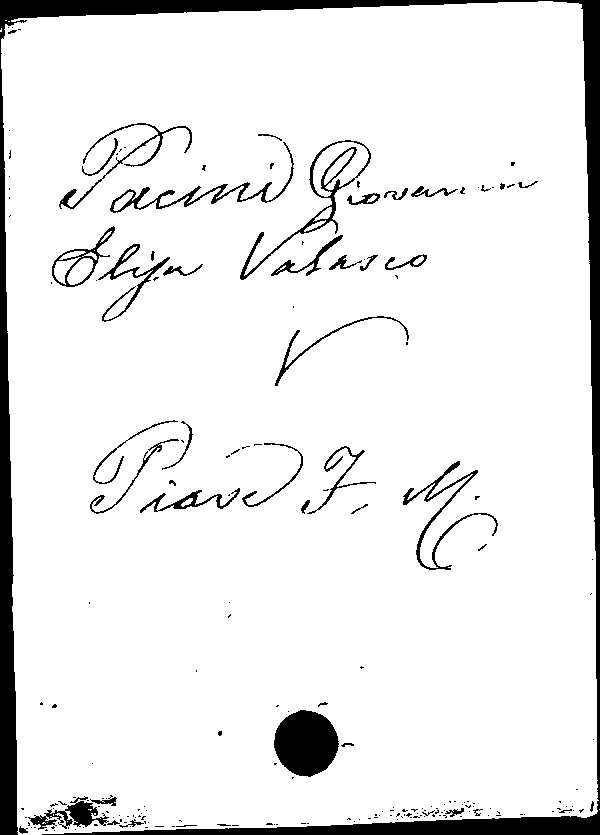 Pacini Giovanni
Elisa Valasco
V
Piave F. M.